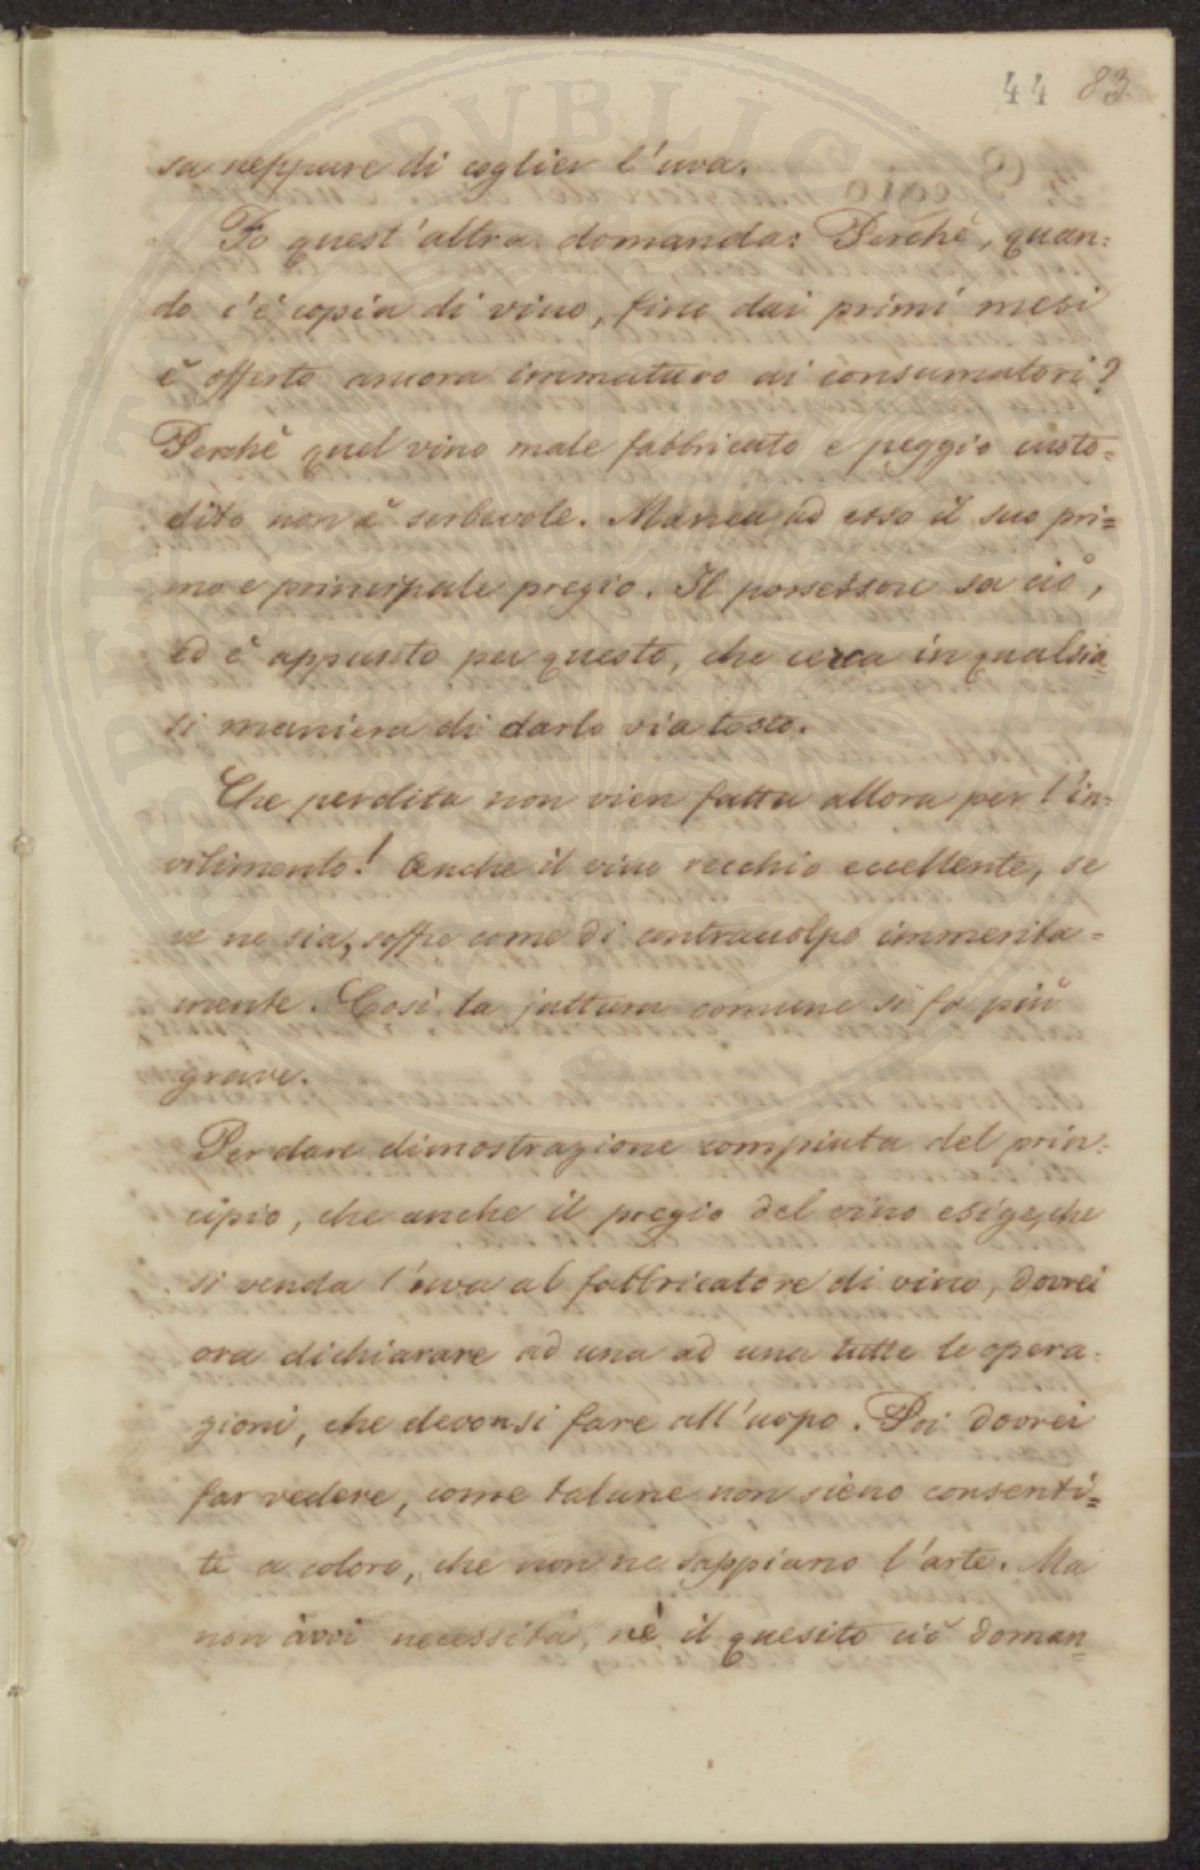 44 83
sa neppure di coglier l'uva.
Fo quest'altra domanda: Perchè, quan:
do c'è copia di vino, fino dai primi mesi
è offerto ancora immaturo ai consumatori?
Perchè quel vino male fabbricato e peggio custo=
dito non è serbevole. Manca ad esso il suo pri=
mo e principale pregio. Il possessore sa ciò,
ed è appunto per questo, che cerca in qualsia=
si maniera di darlo via tosto.
Che perdita non vien fatta allora per l'in:
vilimento! Anche il vino vecchio eccellente, se
ve ne sia, soffre come di contraccolpo immerita=
mente. Così la jattura comune si fa più
grave.
Per dare dimostrazione compiuta del prin:
cipio, che anche il pregio del vino esige, che
si venda l'uva al fabbricatore di vino, dovrei
ora dichiarare ad una ad una tutte le opera:
zioni, che devonsi fare all'uopo. Poi dovrei
far vedere, come talune non sieno consenti=
te a coloro, che non ne sappiano l'arte. Ma
non àvvi necessità, nè il quesito ciò doman=